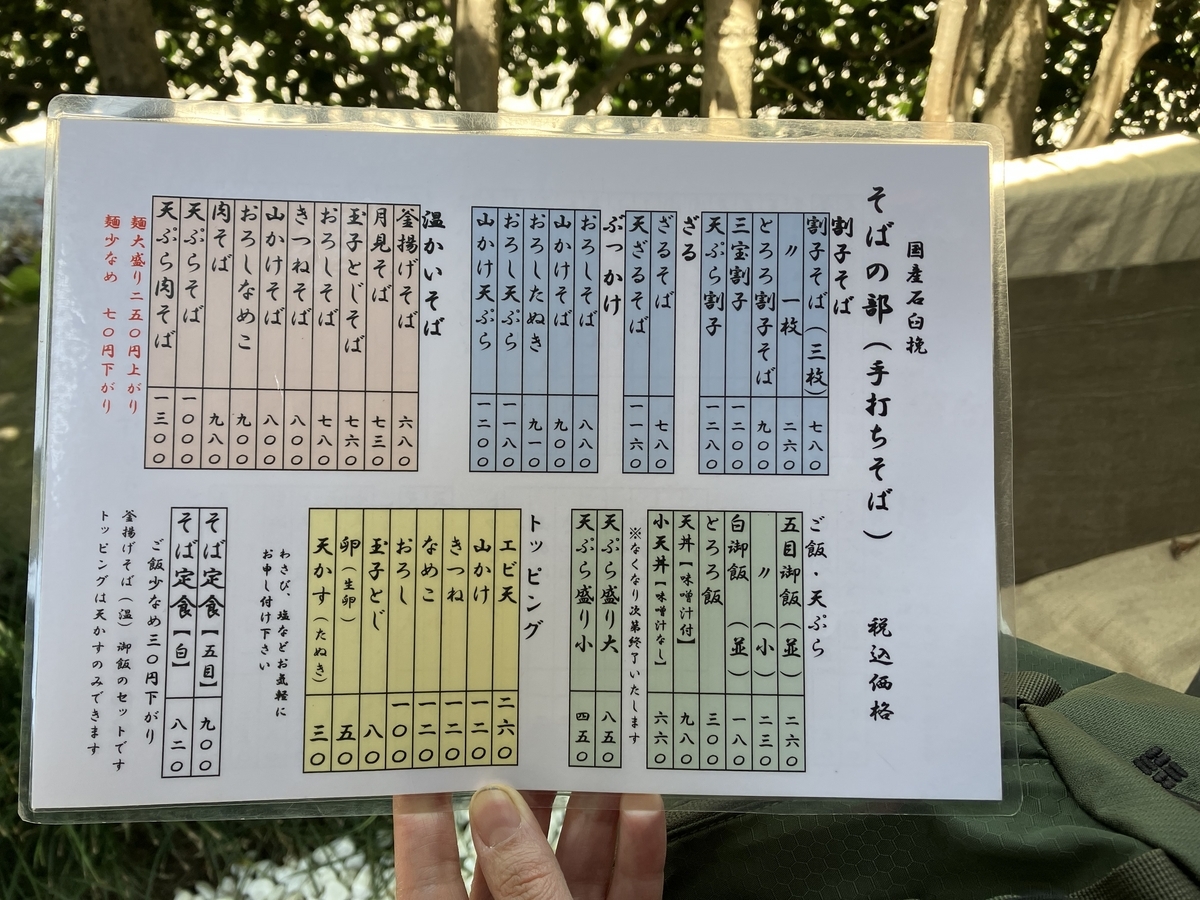 国産石臼挽
そばの部（手打ちそば）　税込価格
割子そば
割子そば（三枚） 七八〇
〃 一枚 二六〇
とろろ割子そば 九〇〇
三宝割子 一二〇〇
天ぷら割子 一二八〇
ざる
ざるそば 七八〇
天ざるそば 一一六〇
ぶっかけ
おろしそば 八八〇
山かけそば 九〇〇
おろしたぬき 九一〇
おろし天ぷら 一一八〇
山かけ天ぷら 一二〇〇
温かいそば
釜揚げそば 六八〇
月見そば 七三〇
玉子とじそば 七六〇
おろしそば 七八〇
きつねそば 八〇〇
山かけそば 八〇〇
おろしなめこ 九〇〇
肉そば 九八〇
天ぷらそば 一〇〇〇
天ぷら肉そば 一三〇〇
麺大盛り二五〇円上がり
麺少なめ 七〇円下がり
ご飯・天ぷら
五目御飯（並） 二六〇
〃（小） 二三〇
白御飯（並） 一八〇
とろろ飯 三〇〇
天丼【味噌汁付】 九八〇
小天丼【味噌汁なし】 六六〇
※なくなり次第終了いたします
天ぷら盛り大 八五〇
天ぷら盛り小 四五〇
トッピング
エビ天 二六〇
山かけ 一二〇
きつね 一二〇
なめこ 一二〇
おろし 一〇〇
玉子とじ 八〇
卵（生卵） 五〇
天かす（たぬき） 三〇
わさび、塩などお気軽に
お申し付け下さい
そば定食【五目】 九〇〇
そば定食【白】 八二〇
ご飯少なめ三〇円下がり
釜揚げそば（温）御飯のセットです
トッピングは天かすのみできます